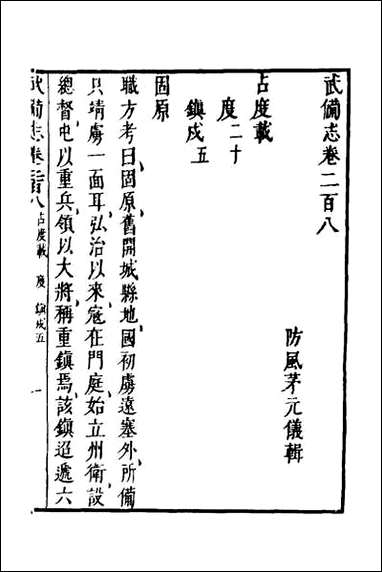 武備志卷二百八
防風茅元儀輯
占度載
度二十
鎮戍五
固原
職方考曰固原舊開城縣地國初虜遠塞外所備
只靖虜一面耳弘治以來寇在門庭始立州衛設
總督屯以重兵領以大將稱重鎮焉該鎮迢遞六
武備志卷二百八 占度載 度 鎮戍五 一